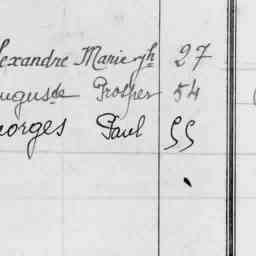 lexandre Marie Jh 27
uguste Prosper 54
eorges Paul 55